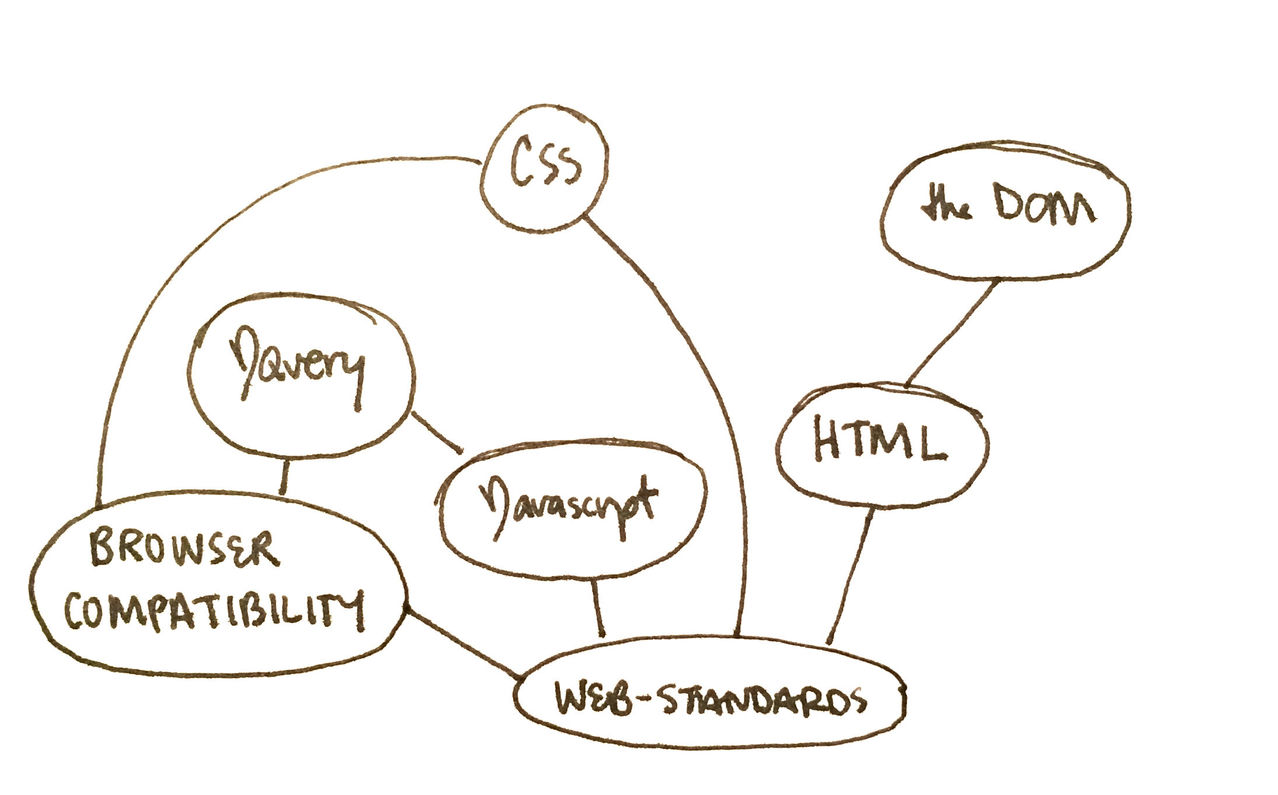 CSS
the DOM
JQuery
HTML
Javascript
BROWSER
COMPATIBILITY
WEB-STANDARDS